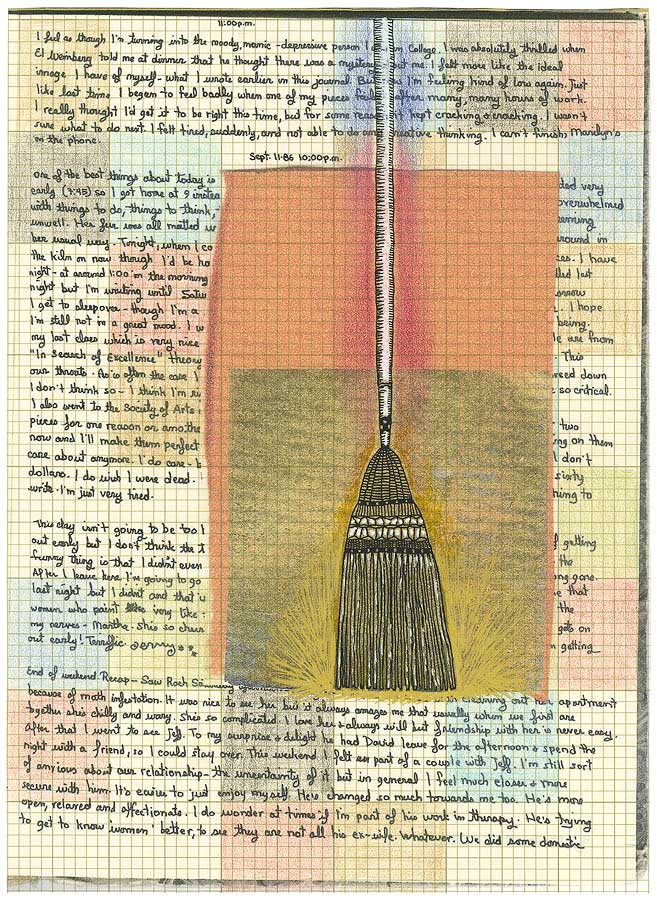 11:00 p.m.
I feel as though I'm turning into the moody, manic-depressive person I in College. I was absolutely thrilled when
El Weinberg told me at dinner that he thought there was a mystery me. I felt more like the ideal
image I have of myself - what I wrote earlier in this journal. But I'm feeling kind of low again. Just
like last time I began to feel badly when one of my pieces after many, many hours of work.
I really thought I'd get it to be right this time, but for some reason it kept cracking & cracking. I wasn't
sure what to do next. I felt tired, suddenly, and not able to do any creative thinking. I can't finish, Marilyn's
on the phone.
Sept. 11. 86 10:00 p.m.
One of the best things about today is ded very
early (7:45) so I got home at 9 overwhelmed
with things to do, things to think,
unwell. Her fur was all matted round in
her usual way. Tonight, when I ces. I have
the kiln on now though I'd be lled last
night - at around 1:00 in the morning
night but I'm waiting until I hope
I get to sleepover - though I'm a being.
I'm still not in a great mood. I w e are from
my last class which is very nice This
"In Search of Excellence" theory eed down
our throats. As is often the case I e so critical.
I don't think so - I think I'm
I also went to the Society of Arts two
pieces for one reason or ng on them
now and I'll make them perfect I don't
care about anymore. I do care - sixty
dollars. I do wish I were dead. hing to
write. I'm just very tired.
This day isn't going to be too getting
out early but I don't think the the
funny thing is that I didn't even ong gone.
After I leave here I'm going to go e that
last night but I didn't and that the
women who paint very like gets on
my nerves - Martha. She's so n getting
out early! Terrific
End of weekend Recap - Saw in cleaning out her apartment
because of moth infestation. It was nice to see her but it always amazes me that usually when we first are
together she's chilly and wary. She's so complicated. I love her & always will but friendship with her is never easy.
After that I went to see Jeff. To my surprise & delight he had David leave for the afternoon & spend the
night with a friend, so I could stay over. This weekend I felt part of a couple with Jeff. I'm still sort
of anxious about our relationship - the uncertainty of it but in general I feel much closer & more
secure with him. It's easier to just enjoy myself. He's changed so much towards me too. He's more
open, relaxed and affectionate. I do wonder at times if I'm part of his work in therapy. He's trying
to get to know 'women' better, to see they are not all his ex-wife. Whatever. We did some domestic